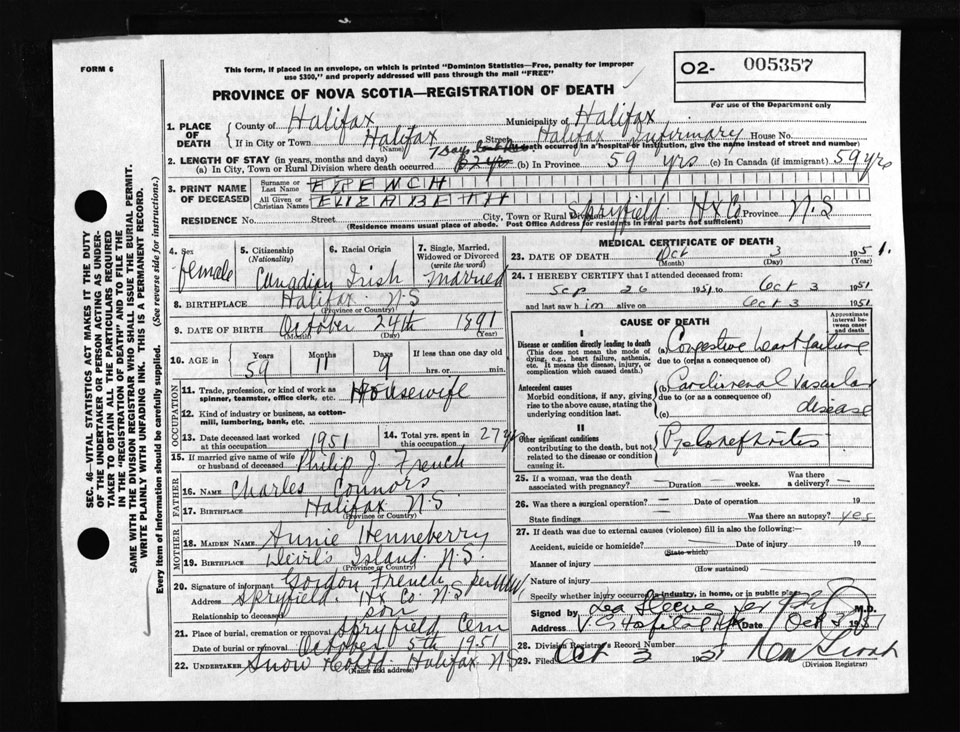 FORM 6
This form, if placed in an envelope, on which is printed "Dominion Statistics—Free, penalty for improper
use $300," and properly addressed will pass through the mail "FREE"
O2- 005357
For use of the Department only
PROVINCE OF NOVA SCOTIA—REGISTRATION OF DEATH
1. PLACE OF DEATH County of Halifax Municipality of Halifax
If in City or Town Halifax Street Halifax Infirmary House No.
(Name) (If death occurred in a hospital or institution, give the name instead of street and number)
2. LENGTH OF STAY (in years, months and days)
(a) In City, Town or Rural Division where death occurred 7 Days (b) In Province 59 yrs (c) In Canada (if immigrant) 59 yrs
3. PRINT NAME OF DECEASED Surname or Last Name FRENCH
All Given or Christian Names ELIZABETH
RESIDENCE No. Street City, Town or Rural Division Spryfield Hx Co Province N.S
(Residence means usual place of abode. Post Office Address for residents in rural parts not sufficient)
4. Sex female
5. Citizenship (Nationality) Canadian
6. Racial Origin Irish
7. Single, Married, Widowed or Divorced (write the word) Married
8. BIRTHPLACE Halifax N.S
(Province or Country)
9. DATE OF BIRTH October 24th 1891
(Month) (Day) (Year)
10. AGE in Years 59 Months 11 Days 9 If less than one day old hrs. or min.
OCCUPATION
11. Trade, profession, or kind of work as spinner, teamster, office clerk, etc. Housewife
12. Kind of industry or business, as cotton-mill, lumbering, bank, etc.
13. Date deceased last worked at this occupation 1951
14. Total yrs. spent in this occupation 27 yrs
15. If married give name of wife or husband of deceased Philip J. French
FATHER
16. NAME Charles Connors
17. BIRTHPLACE Halifax N.S
(Province or Country)
MOTHER
18. MAIDEN NAME Annie Henneberry
19. BIRTHPLACE Devil's Island N.S.
(Province or Country)
20. Signature of informant Gordon French per
Address Spryfield Hx Co N.S
Relationship to deceased son
21. Place of burial, cremation or removal Spryfield Cem
Date of burial or removal October 5th 1951
22. UNDERTAKER Snow Halifax N.S
(Name and address)
MEDICAL CERTIFICATE OF DEATH
23. DATE OF DEATH Oct 3 1951.
(Month) (Day) (Year)
24. I HEREBY CERTIFY that I attended deceased from:
Sep 26 1951 to Oct 3 1951
and last saw him alive on Oct 3 1951
CAUSE OF DEATH
Approximate interval between onset and death
I
Disease or condition directly leading to death
(This does not mean the mode of dying, e.g., heart failure, asthenia, etc. It means the disease, injury, or complication which caused death.)
(a) Congestive heart failure
due to (or as a consequence of)
Antecedent causes
Morbid conditions, if any, giving rise to the above cause, stating the underlying condition last.
(b) Cardiorenal vascular
due to (or as a consequence of) disease
(c)
II
Other significant conditions
contributing to the death, but not related to the disease or condition causing it.
Pyelonephritis
25. If a woman, was the death associated with pregnancy? — Duration — weeks. Was there a delivery? —
26. Was there a surgical operation — Date of operation 19
State findings Was there an autopsy? yes
27. If death was due to external causes (violence) fill in also the following:—
Accident, suicide or homicide? Date of injury 19
(State which)
Manner of injury
(How sustained)
Nature of injury
Specify whether injury occurred in industry, in home, or in public place
Signed by M.D.
Address V.G Hospital Hfx Date Oct 1951
28. Division Registrar's Record Number
29. Filed Oct 3 1951
(Division Registrar)
SEC. 46—VITAL STATISTICS ACT MAKES IT THE DUTY
OF THE UNDERTAKER OR PERSON ACTING AS UNDER-
TAKER TO OBTAIN ALL THE PARTICULARS REQUIRED
IN THE "REGISTRATION OF DEATH" AND TO FILE THE
SAME WITH THE DIVISION REGISTRAR WHO SHALL ISSUE THE BURIAL PERMIT.
WRITE PLAINLY WITH UNFADING INK. THIS IS A PERMANENT RECORD.
Every item of information should be carefully supplied. (See reverse side for instructions.)